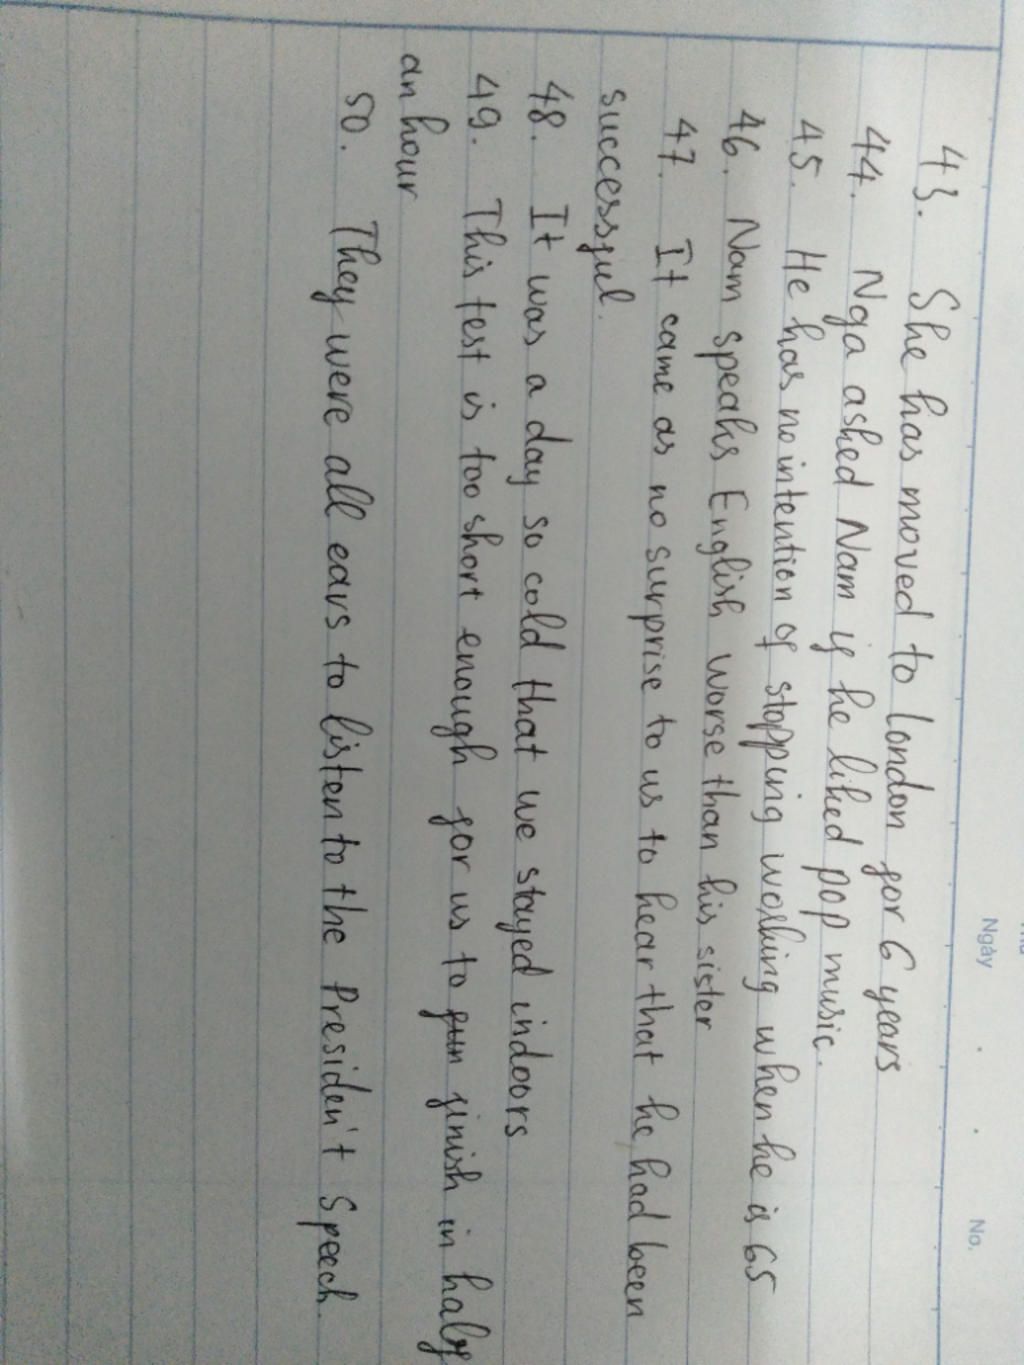 Thứ
Ngày . . No.
43. She has moved to London for 6 years
44. Nga asked Nam if he liked pop music.
45. He has no intention of stopping working when he is 65
46. Nam speaks English worse than his sister
47. It came as no surprise to us to hear that he had been
successful.
48. It was a day so cold that we stayed indoors
49. This test is too short enough for us to finish in half
an hour
50. They were all ears to listen to the Presiden't Speech.